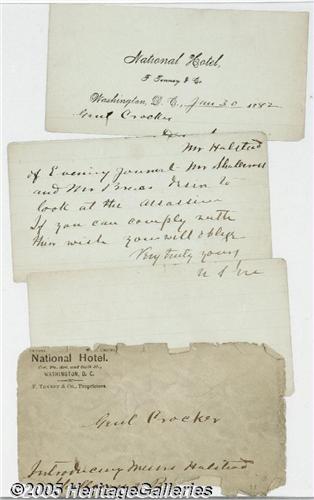 National Hotel,
F. Tenney & Co.
Washington, D. C., Jan 30 1882
Genl Crocker
Mr Halstead
of Evening Journal Mr
and Mr desire to
look at the assassin
If you can comply with
their wish you will oblige
Very truly yours
National Hotel.
Cor. Pa. Ave. and Sixth St.,
WASHINGTON, D. C.
F. TENNEY & CO., Proprietors.
Genl Crocker
Introducing Messrs Halstead
©2005 HeritageGalleries